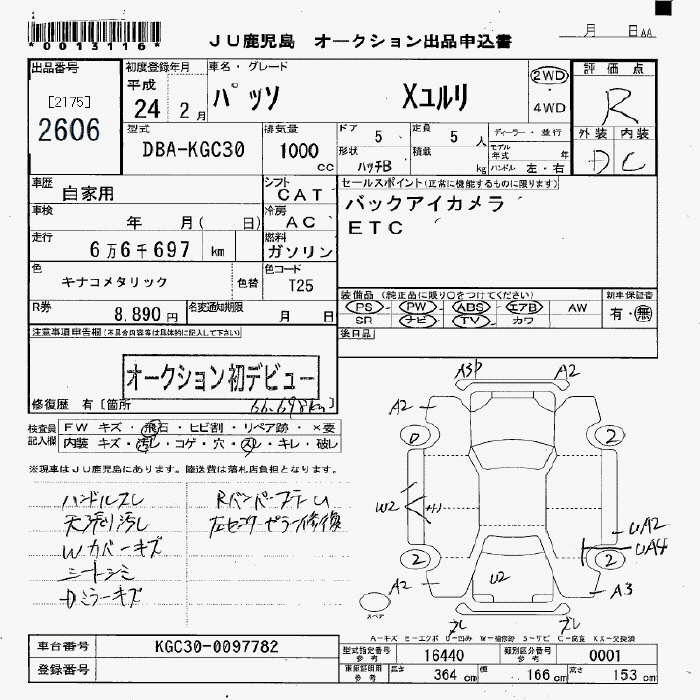 *0013116*
JU鹿児島 オークション出品申込書
月 日
出品番号 初度登録年月 車名・グレード 評価点
[2175] 平成 パッソ Xユルリ 2WD R
2606 24 2月 4WD 外装 内装
型式 排気量 ドア 5 定員 5人 ディーラー・並行 D C
DBA-KGC30 1000cc 形状 ハッチB 積載 kg モデル年式 年
ハンドル 左・右
車歴 自家用 シフト CAT セールスポイント(正常に機能するものに限ります)
車検 年 月( 日) 冷房 AC バックアイカメラ
走行 6万6千697 km 燃料 ガソリン ETC
色 キナコメタリック 色替 色コード T25
R券 8,890円 名変通知期限 月 日
装備品 (純正品に限り○をつけてください) 新車保証書
PS PW ABS エアB AW 有・無
SR ナビ TV カワ
注意事項申告欄(不具合内容等は具体的に記入して下さい) 後日品
オークション初デビュー
修復歴 有[箇所 66,698km]
検査員記入欄 FW キズ・飛石・ヒビ割・リペア跡・×要
内装 キズ・汚レ・コゲ・穴・スレ・キレ・破レ
※現車はJU鹿児島にあります。陸送費は落札店負担となります。
ハンドルスレ
天張り汚レ
Wカバーキズ
シートシミ
Dミラーキズ
A2
A2 A2
2
W2
UA2
UA4
2 2
A2 U2 A3
スペア
ズレ ズレ
A-キズ E-エクボ U-凹み W-補修跡 S-サビ C-腐食 XX-交換済
車台番号 KGC30-0097782 型式指定番号 参考 16440 類別区分番号 参考 0001
登録番号 車庫証明用 参考 長さ 364 cm 幅 166 cm 高さ 153 cm